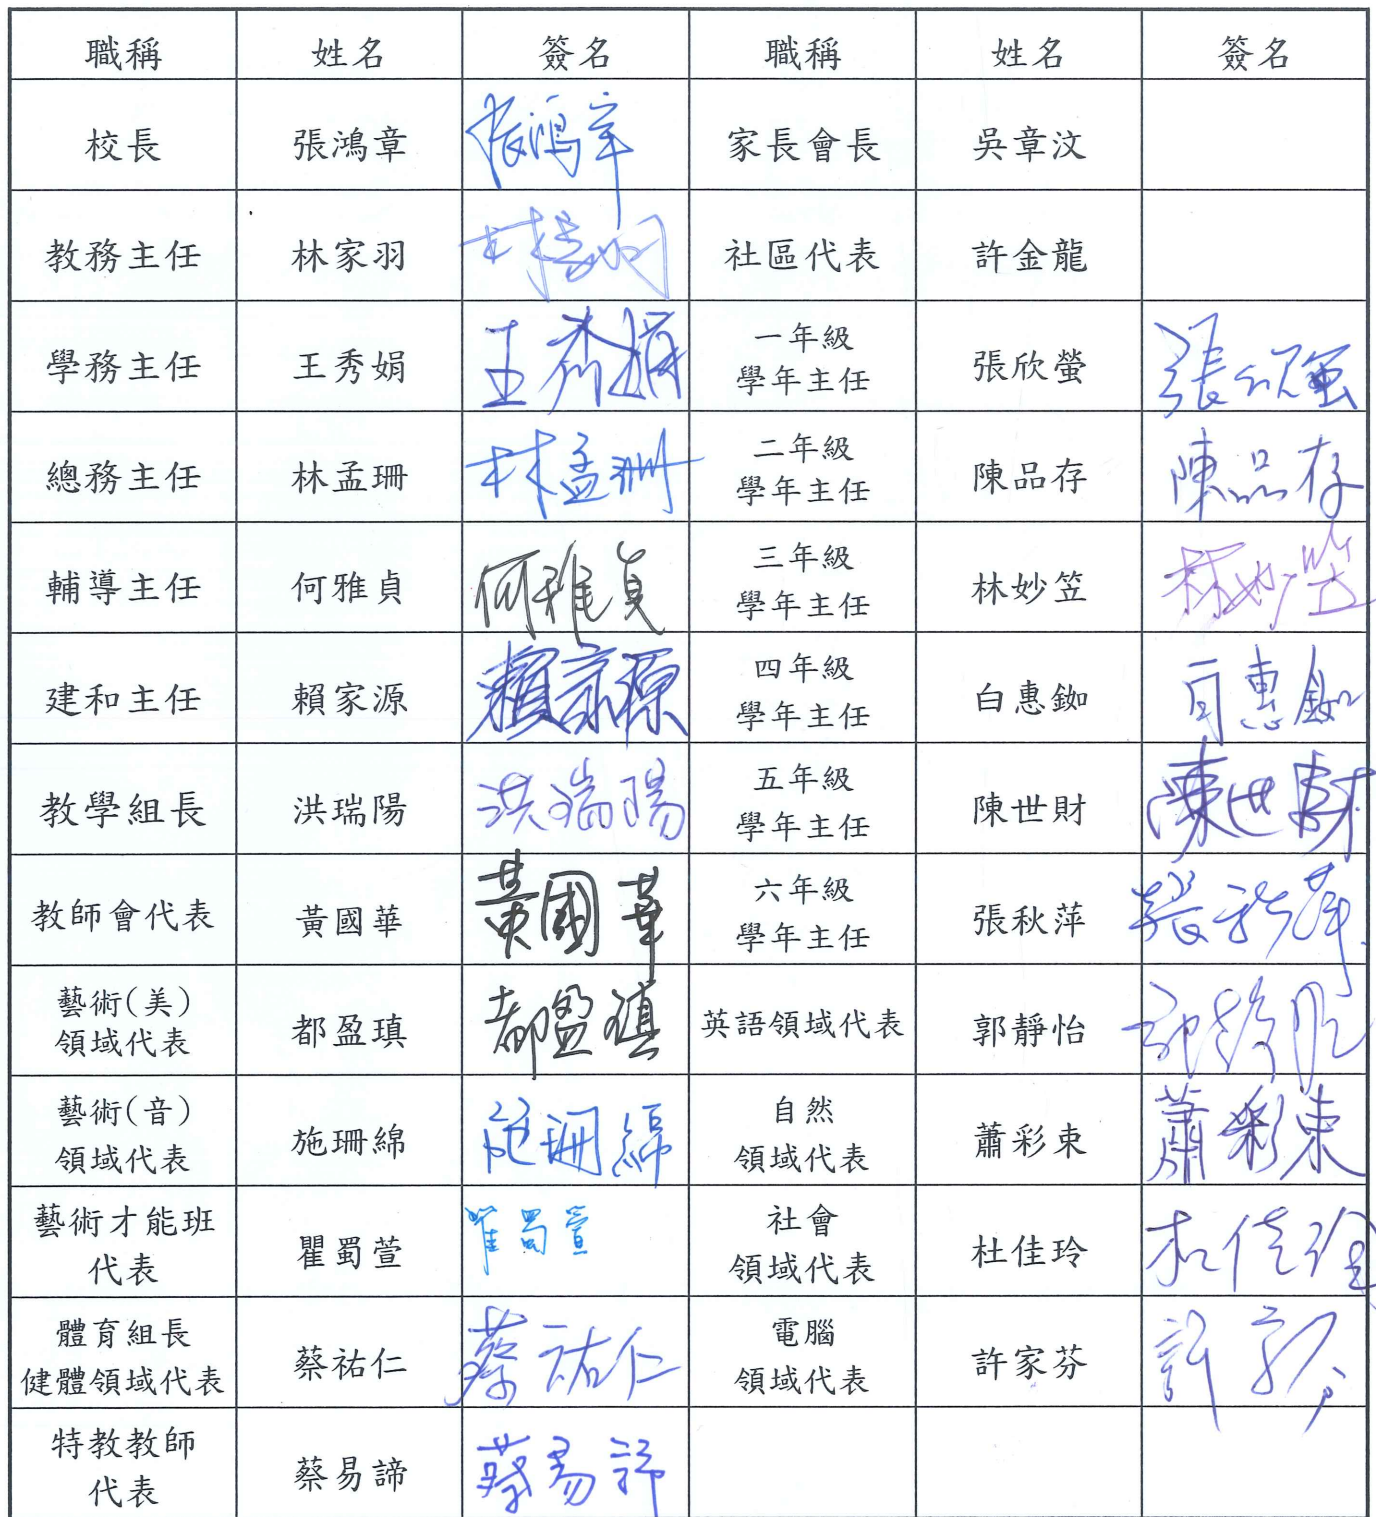 職稱 姓名 簽名 職稱 姓名 簽名
校長 張鴻章 張鴻章 家長會長 吳章汶
教務主任 林家羽 社區代表 許金龍
學務主任 王秀娟 王秀娟 一年級 學年主任 張欣螢 張欣螢
總務主任 林孟珊 林孟珊 二年級 學年主任 陳品存 陳品存
輔導主任 何雅貞 何雅貞 三年級 學年主任 林妙笠 林妙笠
建和主任 賴家源 賴家源 四年級 學年主任 白惠鉫 白惠鉫
教學組長 洪瑞陽 洪瑞陽 五年級 學年主任 陳世財 陳世財
教師會代表 黃國華 黃國華 六年級 學年主任 張秋萍 張秋萍
藝術(美) 領域代表 都盈瑱 都盈瑱 英語領域代表 郭靜怡
藝術(音) 領域代表 施珊綿 施珊綿 自然 領域代表 蕭彩束 蕭彩束
藝術才能班 代表 瞿蜀萱 瞿蜀萱 社會 領域代表 杜佳玲 杜佳玲
體育組長 健體領域代表 蔡祐仁 蔡祐仁 電腦 領域代表 許家芬
特教教師 代表 蔡易諦 蔡易諦